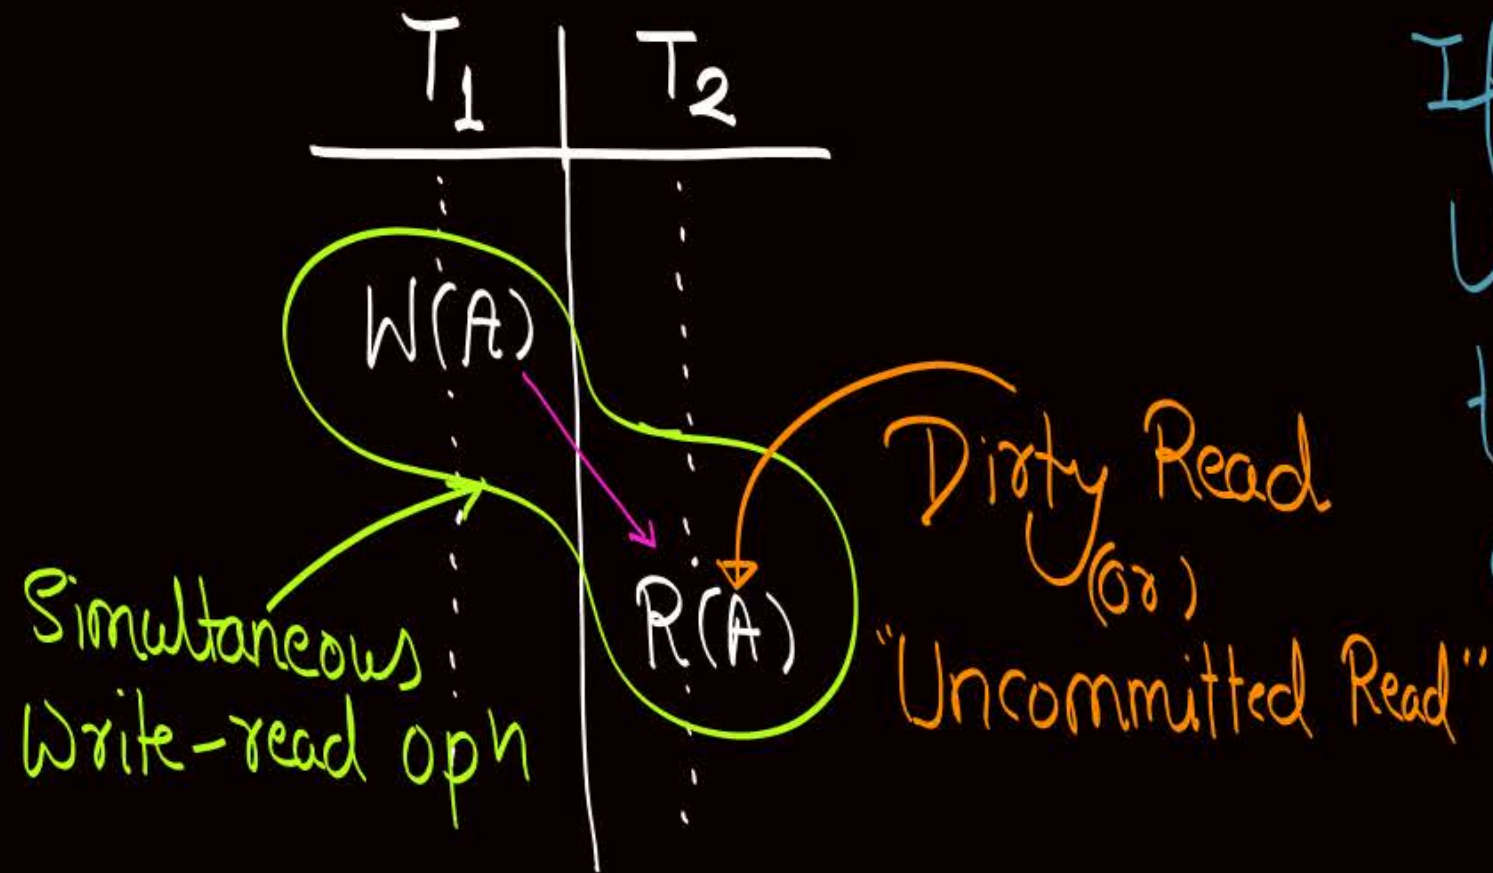 T1 T2
W(A)
R(A)
Simultaneous
Write-read opn
Dirty Read
(or)
"Uncommitted Read"
If